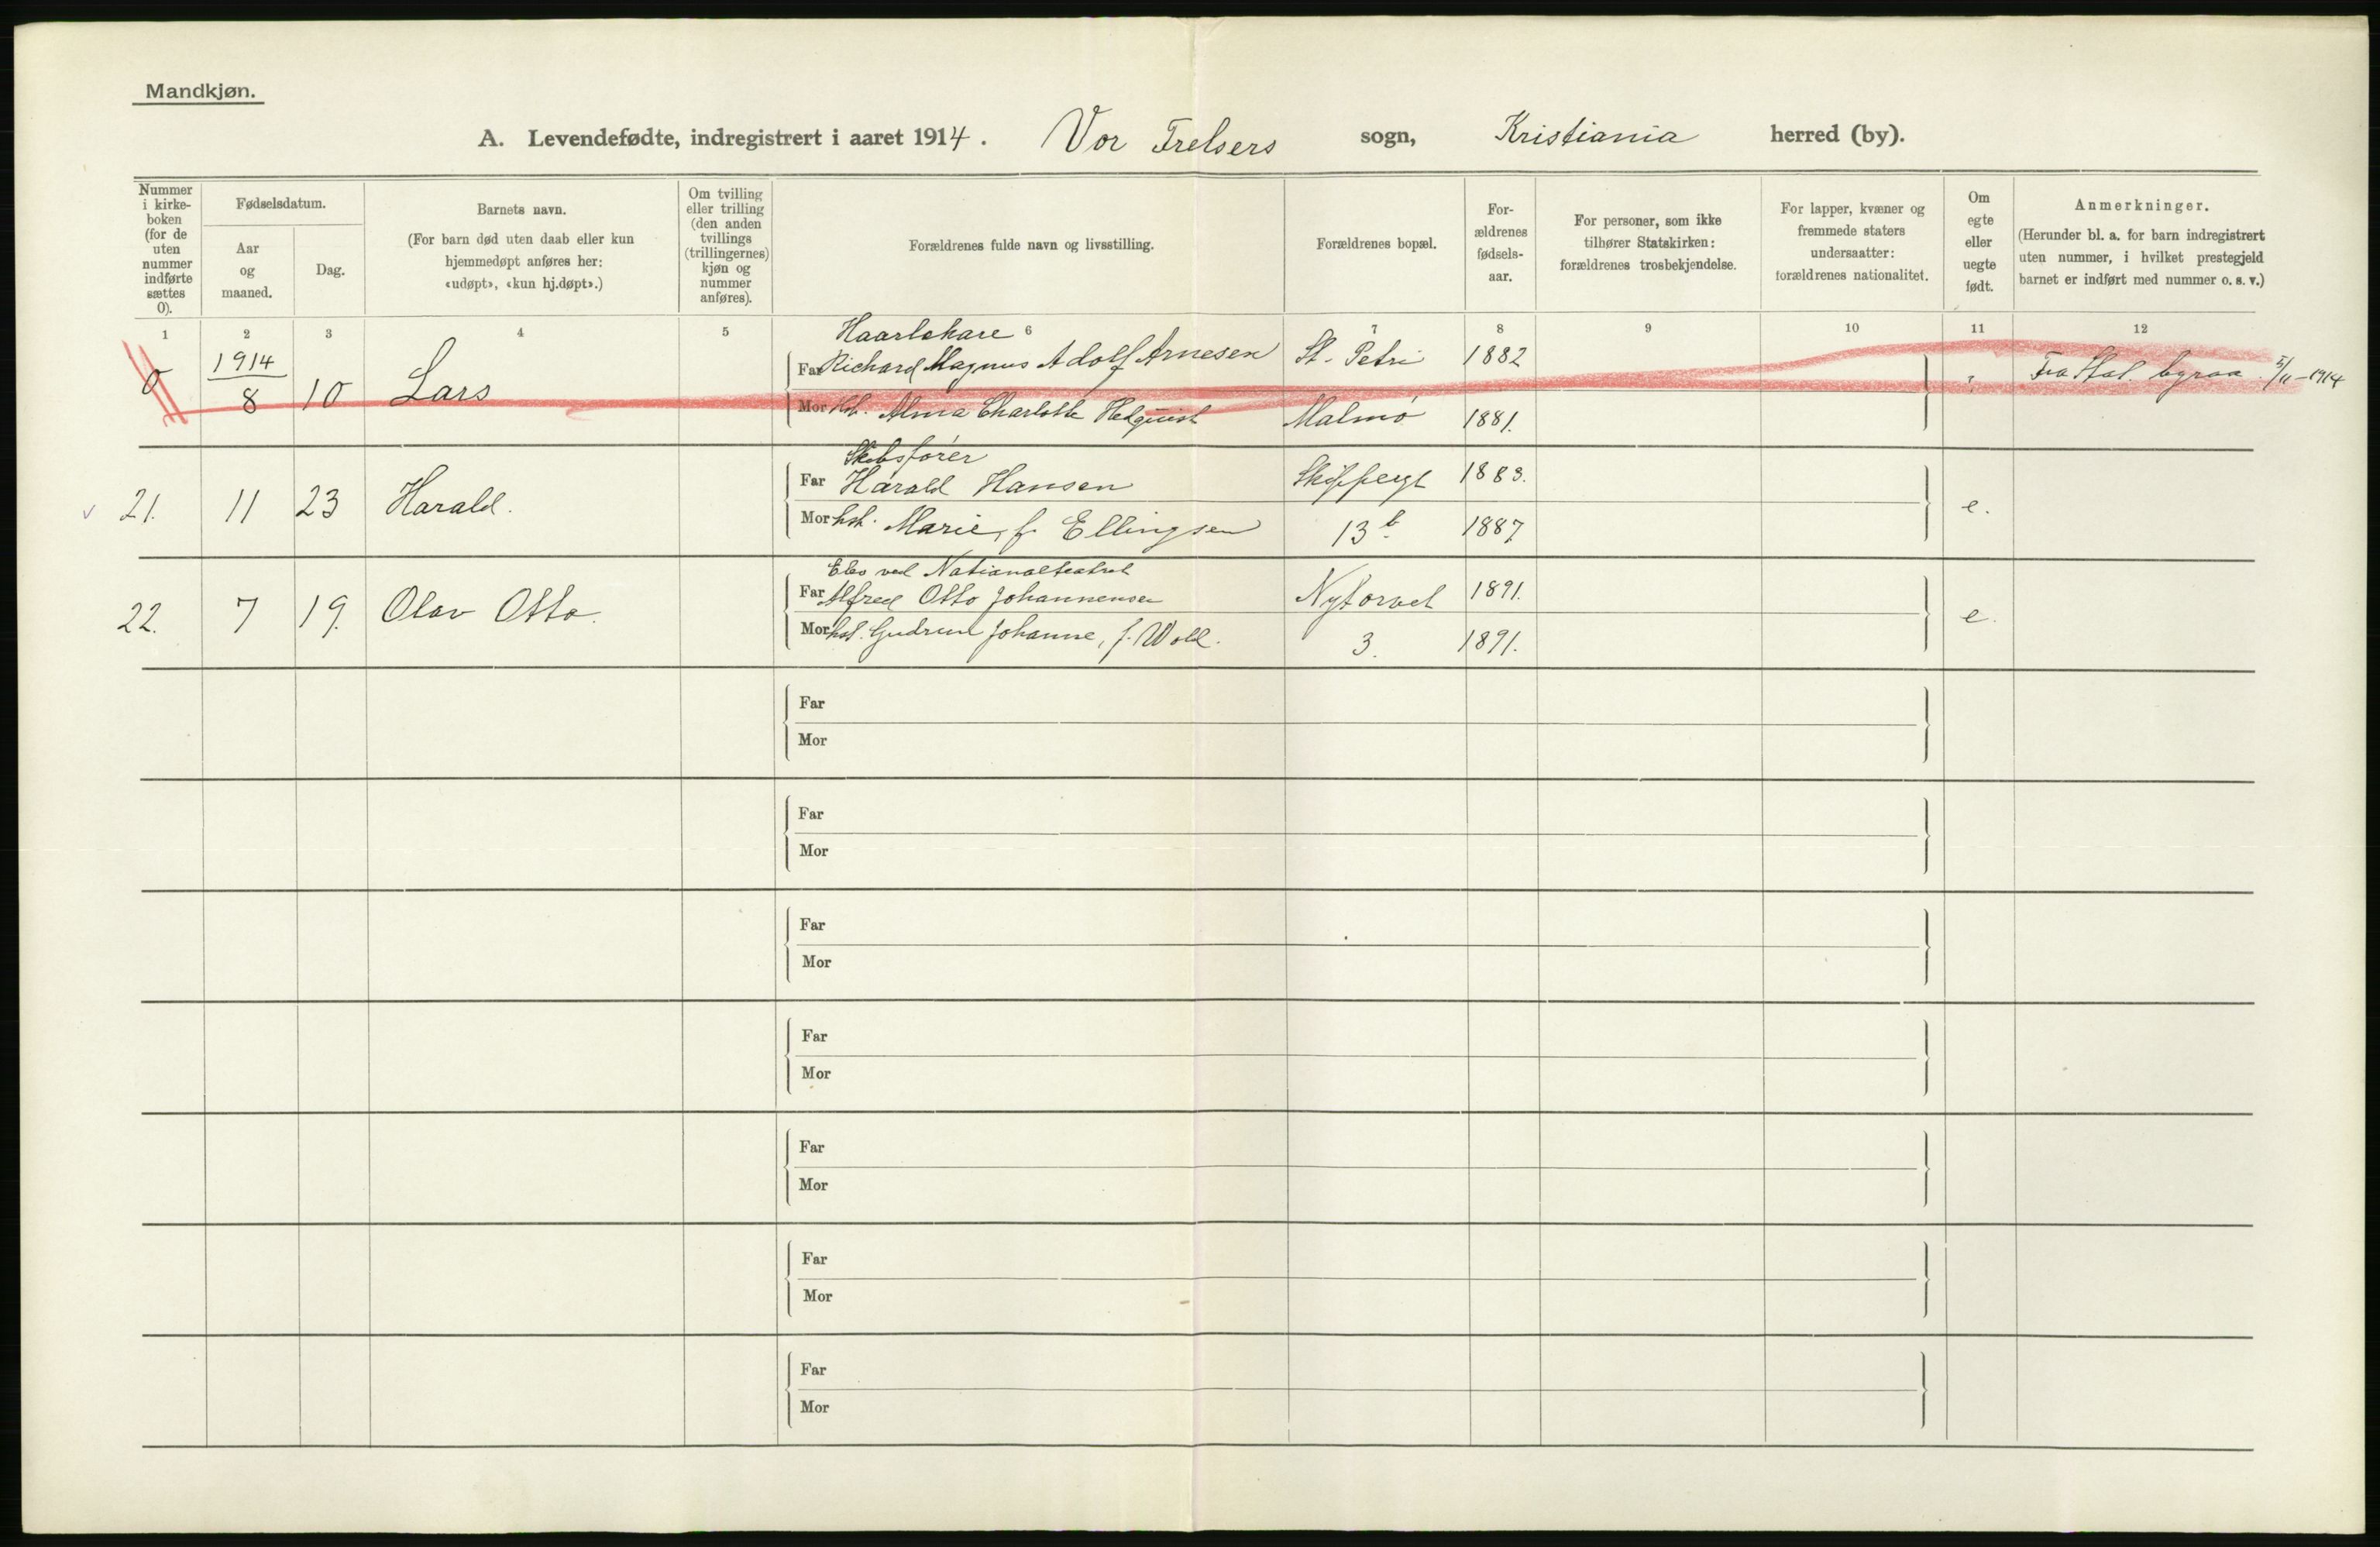 Mandkjøn.
A. Levendefødte, indregistrert i aaret 1914. Vor Frelsers sogn, Kristiania herred (by).
Nummer
i kirke-
boken
(for de
uten
nummer
indførte
sættes
0).
Fødselsdatum.
Aar
og
maaned.
Dag.
Barnets navn.
(For barn død uten daab eller kun
hjemmedøpt anføres her:
«udøpt», «kun hj.døpt».)
Om tvilling
eller trilling
(den anden
tvillings
(trillingernes)
kjøn og
nummer
anføres).
Forældrenes fulde navn og livsstilling.
Forældrenes bopæl.
For-
ældrenes
fødsels-
aar.
For personer, som ikke
tilhører Statskirken:
forældrenes trosbekjendelse.
For lapper, kvæner og
fremmede staters
undersaatter:
forældrenes nationalitet.
Om
egte
eller
uegte
født.
Anmerkninger.
(Herunder bl. a. for barn indregistrert
uten nummer, i hvilket prestegjeld
barnet er indført med nummer o. s. v.)
1 2 3 4 5 6 7 8 9 10 11 12
Far Richard Magnus Adolf Arnesen St. Petri 1882
0 1914 8 10 Lars Fra Stat. byraa 5/11-1914
Mor Alma Charlotte Malmö 1881.
Skibsfører
Far Harald Hansen 1883.
21. 11 23 Harald. e.
Mor hst. Marie, f. Ellingsen 13 b 1887
Elev ved Nationalteatret
Far Alfred Otto Johannensen Nytorvet 1891.
22. 7 19. Olav Otto. e.
Mor hst. Gudrun Johanne, f. Wold. 3. 1891.
Far
Mor
Far
Mor
Far
Mor
Far
Mor
Far
Mor
Far
Mor
Far
Mor